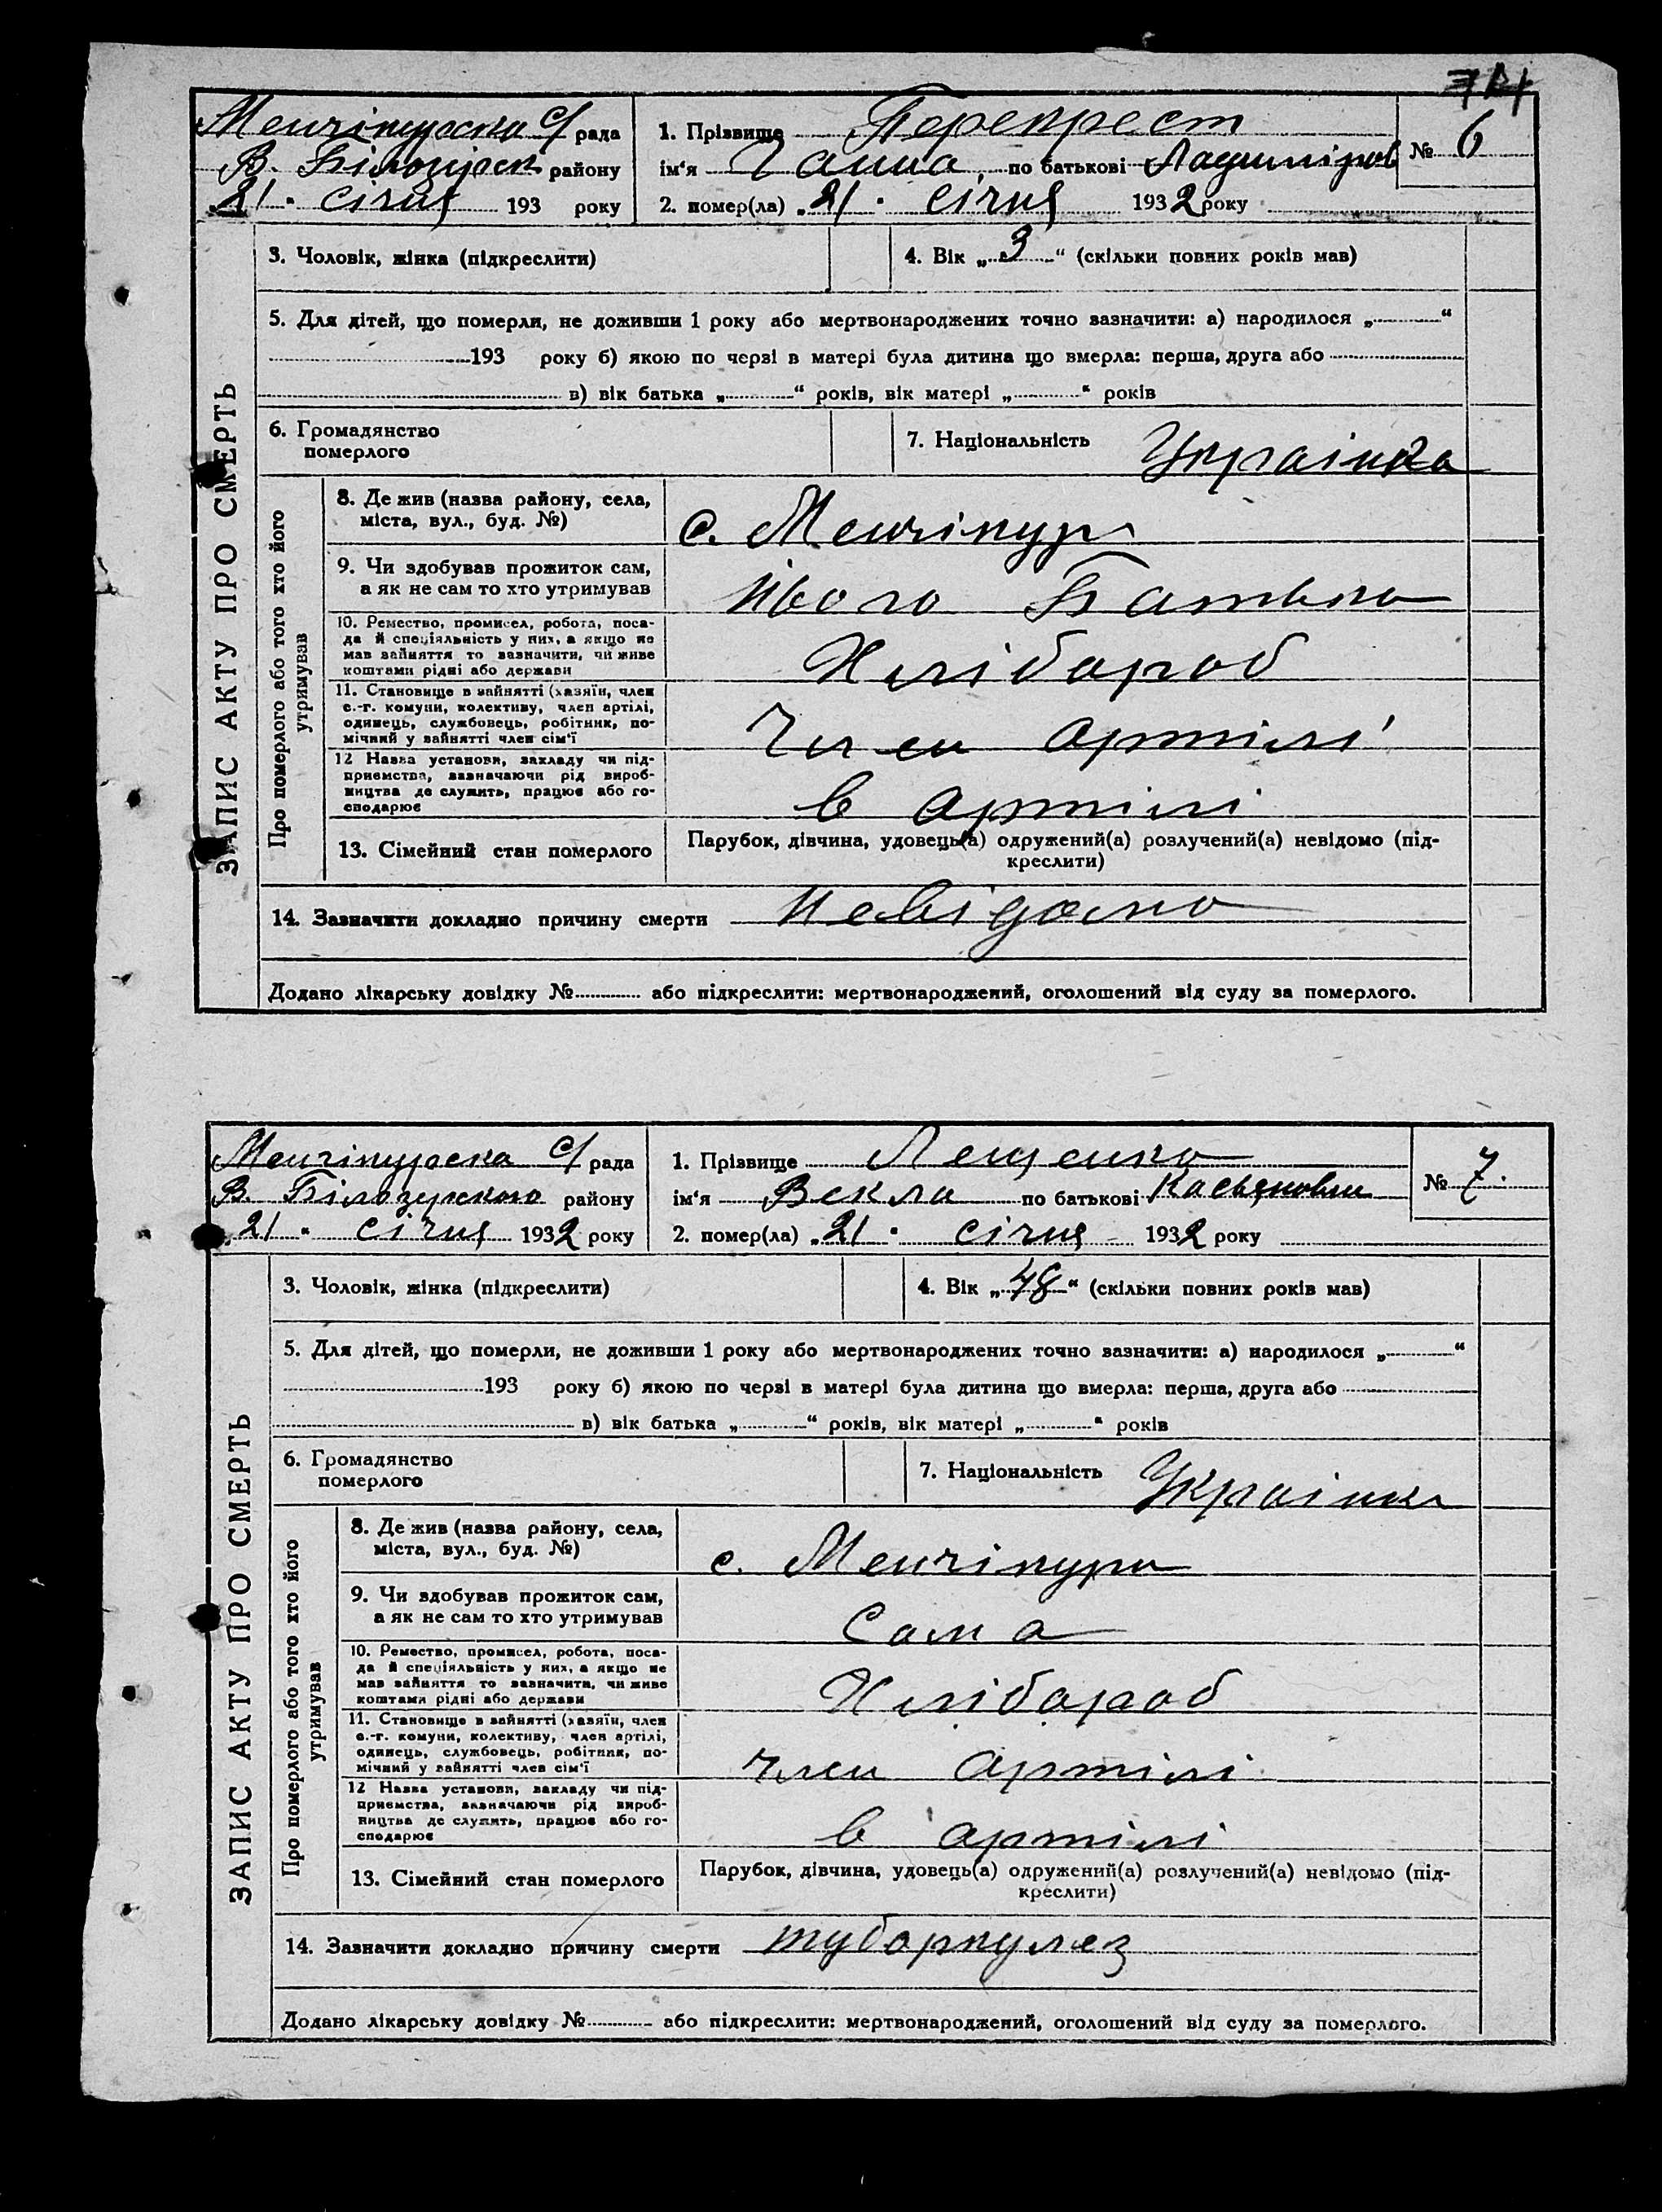 Менчікурска с/рада
В. Білозірск району
„21“ січня 193 року
1. Прізвище Перекрест
ім'я Ганна, по батькові Ладиміров
№ 6
2. помер(ла) „21“ січня 1932 року
ЗАПИС АКТУ ПРО СМЕРТЬ
3. Чоловік, жінка (підкреслити)
4. Вік „3“ (скільки повних років мав)
5. Для дітей, що померли, не доживши 1 року або мертвонароджених точно зазначити: а) народилося „ “
193 року б) якою по черзі в матері була дитина що вмерла: перша, друга або
в) вік батька „ “ років, вік матері „ “ років
6. Громадянство
померлого
7. Національність Українка
Про померлого або того хто його
утримував
8. Де жив (назва району, села,
міста, вул., буд. №)
с. Менчікури
9. Чи здобував прожиток сам,
а як не сам то хто утримував
Його Батько
10. Ремество, промисел, робота, поса-
да й спеціяльність у них, а якщо не
мав зайняття то зазначити, чи живе
коштами рідні або держави
Хлібороб
11. Становище в зайнятті (хазяїн, член
с.-г. комуни, колективу, член артілі,
одинець, службовець, робітник, по-
мічний у зайнятті член сім'ї
Член артілі
12 Назва установи, закладу чи під-
приємства, зазначаючи рід вироб-
ництва де служить, працює або го-
сподарює
в артілі
13. Сімейний стан померлого
Парубок, дівчина, удовець(а) одружений(а) розлучений(а) невідомо (під-
креслити)
14. Зазначити докладно причину смерти Невідомо
Додано лікарську довідку № або підкреслити: мертвонароджений, оголошений від суду за померлого.
Менчікурска с/рада
В. Білозерського району
„21“ січня 1932 року
1. Прізвище Лещенко
ім'я Векла по батькові Касьяновна
№ 7.
2. помер(ла) „21“ січня 1932 року
ЗАПИС АКТУ ПРО СМЕРТЬ
3. Чоловік, жінка (підкреслити)
4. Вік „48“ (скільки повних років мав)
5. Для дітей, що померли, не доживши 1 року або мертвонароджених точно зазначити: а) народилося „ “
193 року б) якою по черзі в матері була дитина що вмерла: перша, друга або
в) вік батька „ “ років, вік матері „ “ років
6. Громадянство
померлого
7. Національність Українка
Про померлого або того хто його
утримував
8. Де жив (назва району, села,
міста, вул., буд. №)
с. Менчікури
9. Чи здобував прожиток сам,
а як не сам то хто утримував
Сама
10. Ремество, промисел, робота, поса-
да й спеціяльність у них, а якщо не
мав зайняття то зазначити, чи живе
коштами рідні або держави
Хлібороб
11. Становище в зайнятті (хазяїн, член
с.-г. комуни, колективу, член артілі,
одинець, службовець, робітник, по-
мічний у зайнятті член сім'ї
член артілі
12 Назва установи, закладу чи під-
приємства, зазначаючи рід вироб-
ництва де служить, працює або го-
сподарює
в артілі
13. Сімейний стан померлого
Парубок, дівчина, удовець(а) одружений(а) розлучений(а) невідомо (під-
креслити)
14. Зазначити докладно причину смерти туборкулез
Додано лікарську довідку № або підкреслити: мертвонароджений, оголошений від суду за померлого.